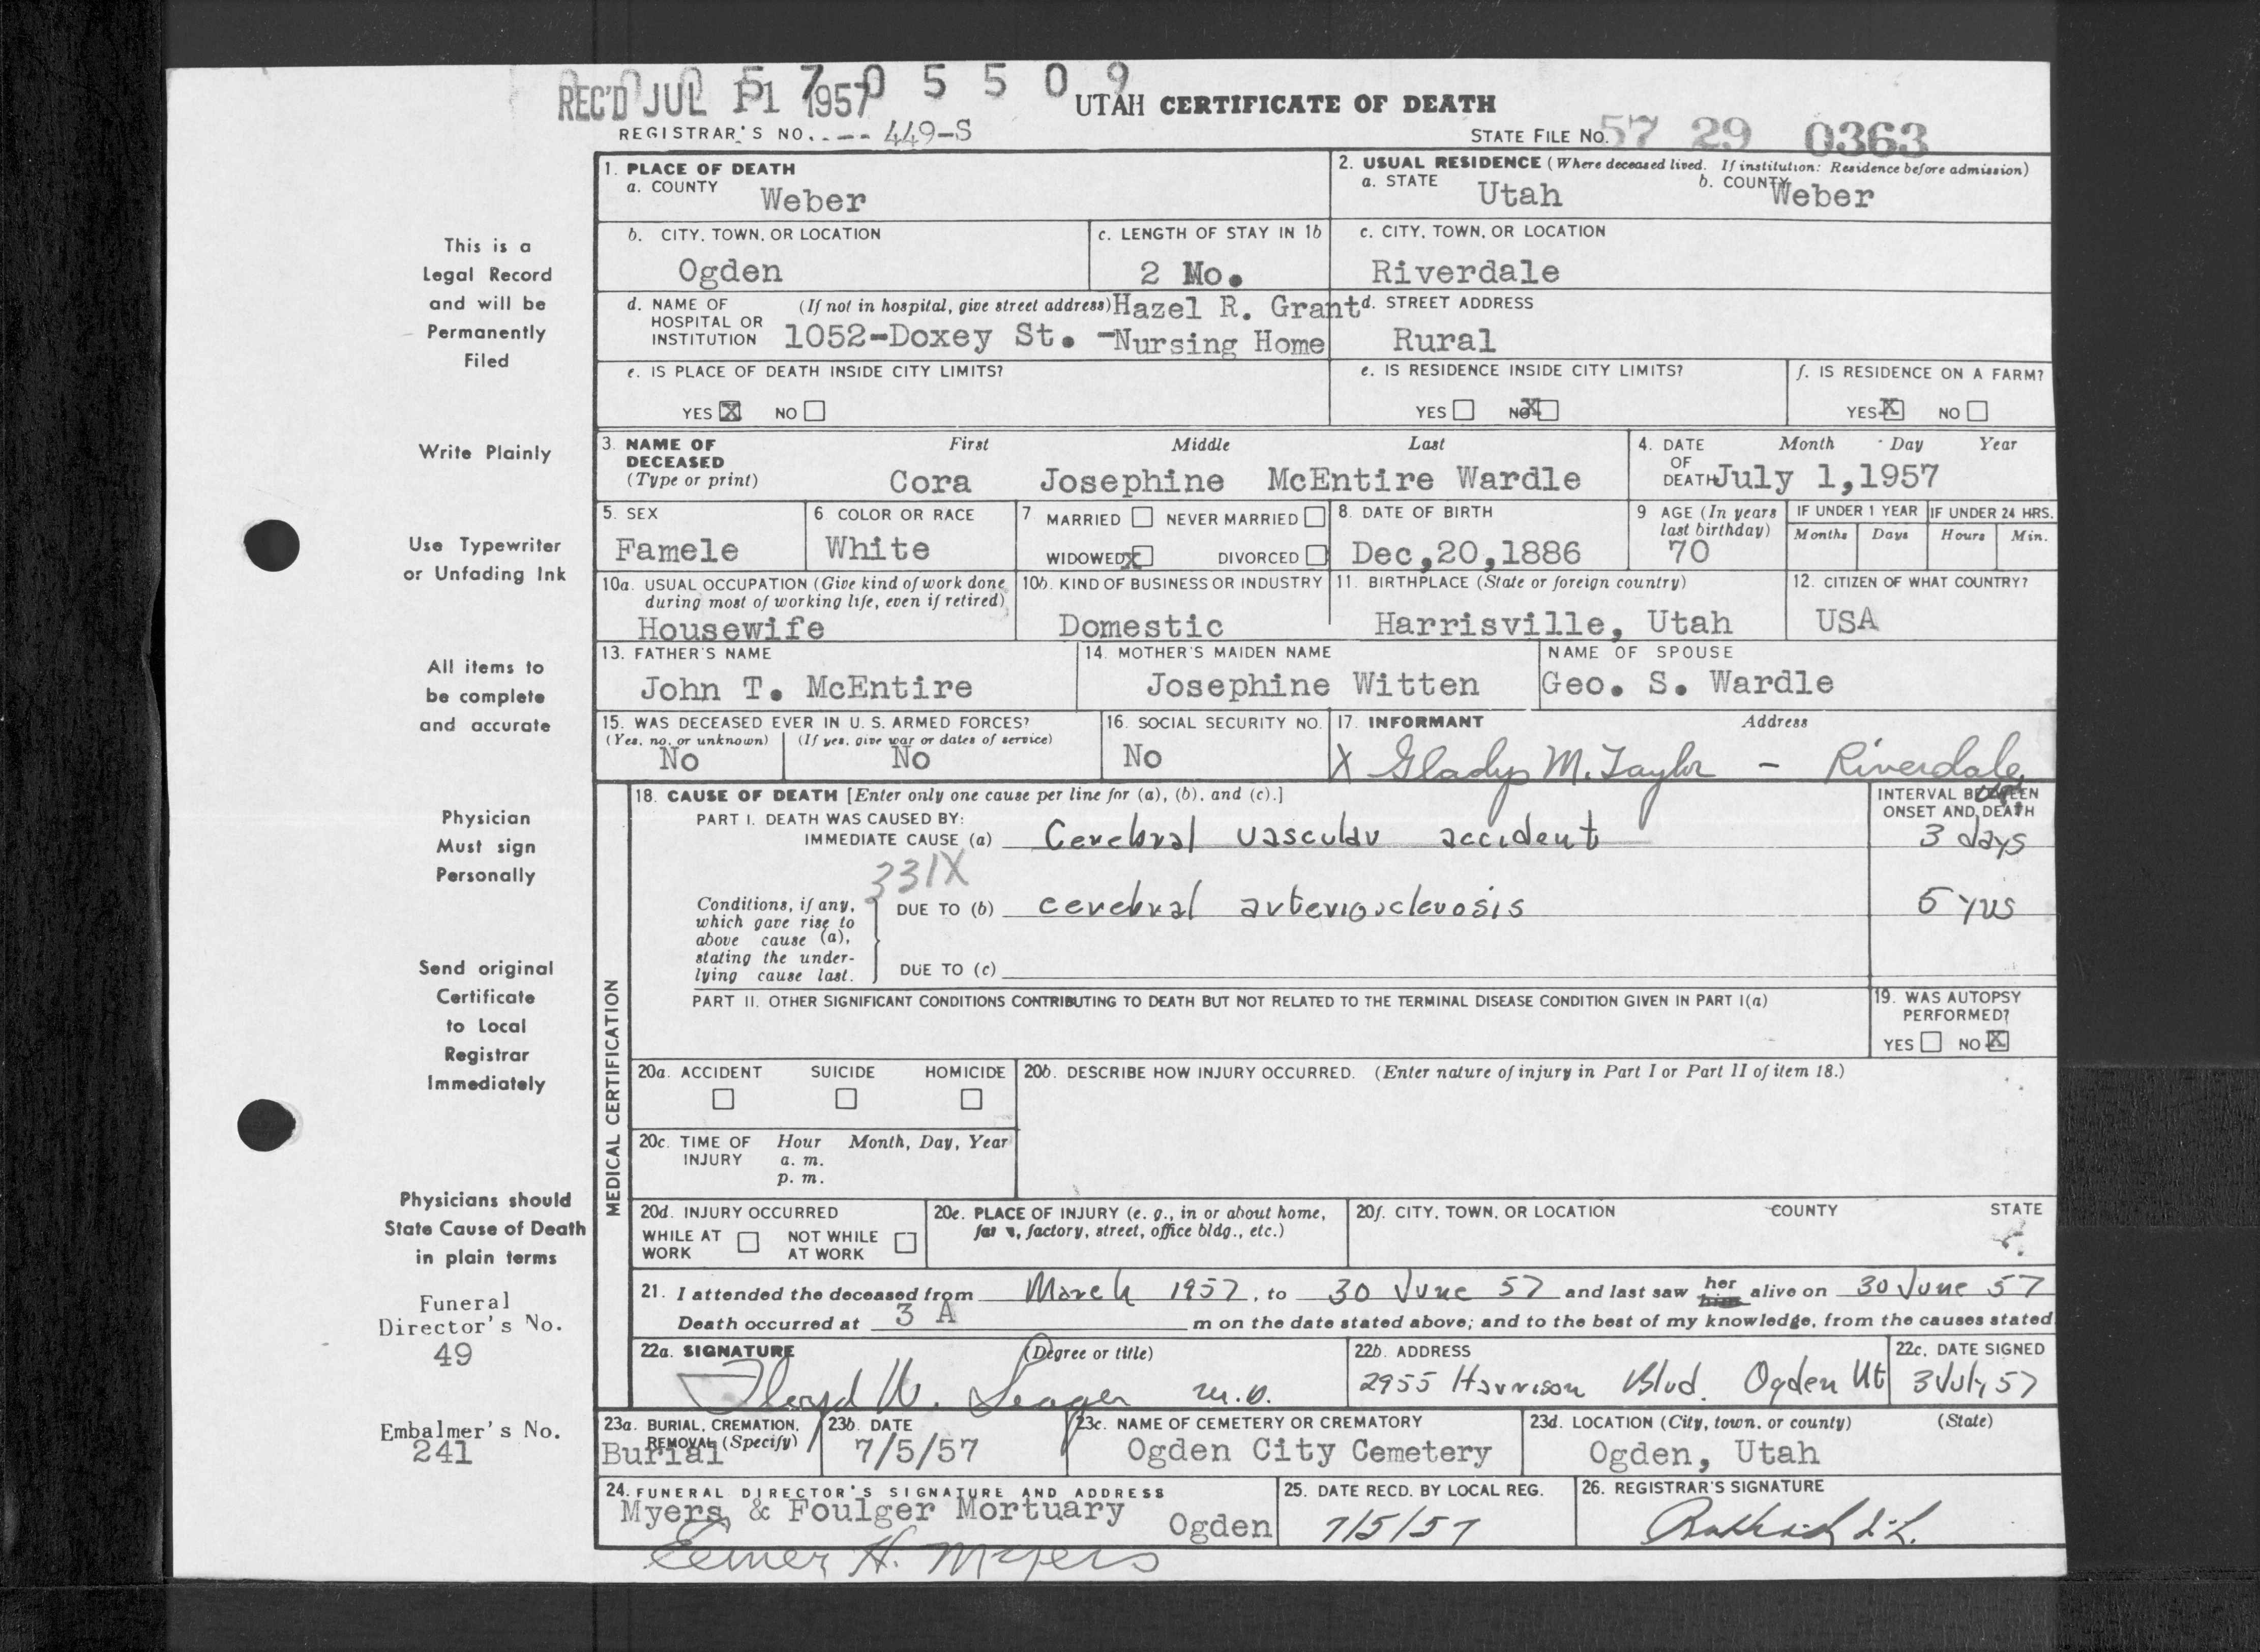 REC'D JUL 11 1957
5 7 0 5 5 0 9
UTAH CERTIFICATE OF DEATH
REGISTRAR'S NO. 449-S
STATE FILE NO. 57 29 0363
1. PLACE OF DEATH
a. COUNTY Weber
2. USUAL RESIDENCE (Where deceased lived. If institution: Residence before admission)
a. STATE Utah b. COUNTY Weber
b. CITY, TOWN, OR LOCATION Ogden
c. LENGTH OF STAY IN 1b 2 Mo.
c. CITY, TOWN, OR LOCATION Riverdale
d. NAME OF HOSPITAL OR INSTITUTION (If not in hospital, give street address) Hazel R. Grant
1052-Doxey St. -Nursing Home
d. STREET ADDRESS Rural
e. IS PLACE OF DEATH INSIDE CITY LIMITS?
YES X NO
e. IS RESIDENCE INSIDE CITY LIMITS?
YES NO X
f. IS RESIDENCE ON A FARM?
YES X NO
3. NAME OF DECEASED (Type or print) First Middle Last
Cora Josephine McEntire Wardle
4. DATE OF DEATH Month Day Year
July 1,1957
5. SEX Famele
6 COLOR OR RACE White
7 MARRIED NEVER MARRIED
WIDOWED X DIVORCED
8. DATE OF BIRTH Dec,20,1886
9 AGE (In years last birthday) 70
IF UNDER 1 YEAR Months Days
IF UNDER 24 HRS. Hours Min.
10a. USUAL OCCUPATION (Give kind of work done during most of working life, even if retired)
Housewife
10b. KIND OF BUSINESS OR INDUSTRY
Domestic
11. BIRTHPLACE (State or foreign country)
Harrisville, Utah
12. CITIZEN OF WHAT COUNTRY?
USA
13. FATHER'S NAME
John T. McEntire
14. MOTHER'S MAIDEN NAME
Josephine Witten
NAME OF SPOUSE
Geo. S. Wardle
15. WAS DECEASED EVER IN U. S. ARMED FORCES?
(Yes, no, or unknown) (If yes, give war or dates of service)
No No
16. SOCIAL SECURITY NO.
No
17. INFORMANT Address
X Gladys M. Taylor - Riverdale
18. CAUSE OF DEATH [Enter only one cause per line for (a), (b), and (c).]
INTERVAL BETWEEN ONSET AND DEATH
PART I. DEATH WAS CAUSED BY:
IMMEDIATE CAUSE (a) Cerebral vascular accident 3 days
331X
Conditions, if any, which gave rise to above cause (a), stating the underlying cause last.
DUE TO (b) cerebral arteriosclerosis 5 yrs
DUE TO (c)
PART II. OTHER SIGNIFICANT CONDITIONS CONTRIBUTING TO DEATH BUT NOT RELATED TO THE TERMINAL DISEASE CONDITION GIVEN IN PART I(a)
19. WAS AUTOPSY PERFORMED?
YES NO X
MEDICAL CERTIFICATION
20a. ACCIDENT SUICIDE HOMICIDE
20b. DESCRIBE HOW INJURY OCCURRED. (Enter nature of injury in Part I or Part II of item 18.)
20c. TIME OF INJURY Hour Month, Day, Year
a. m.
p. m.
20d. INJURY OCCURRED
WHILE AT WORK NOT WHILE AT WORK
20e. PLACE OF INJURY (e. g., in or about home, factory, street, office bldg., etc.)
20f. CITY, TOWN, OR LOCATION COUNTY STATE
21. I attended the deceased from March 1957, to 30 June 57 and last saw her him alive on 30 June 57
Death occurred at 3 A m on the date stated above; and to the best of my knowledge, from the causes stated
22a. SIGNATURE (Degree or title)
Floyd W. Seager M.D.
22b. ADDRESS
2955 Harrison Blvd. Ogden Ut
22c. DATE SIGNED
3 July 57
23a. BURIAL, CREMATION, REMOVAL (Specify)
Burial
23b. DATE
7/5/57
23c. NAME OF CEMETERY OR CREMATORY
Ogden City Cemetery
23d. LOCATION (City, town, or county) (State)
Ogden, Utah
24. FUNERAL DIRECTOR'S SIGNATURE AND ADDRESS
Myers & Foulger Mortuary Ogden
Elmer H. Myers
25. DATE RECD. BY LOCAL REG.
7/5/57
26. REGISTRAR'S SIGNATURE
This is a
Legal Record
and will be
Permanently
Filed
Write Plainly
Use Typewriter
or Unfading Ink
All items to
be complete
and accurate
Physician
Must sign
Personally
Send original
Certificate
to Local
Registrar
Immediately
Physicians should
State Cause of Death
in plain terms
Funeral
Director's No.
49
Embalmer's No.
241